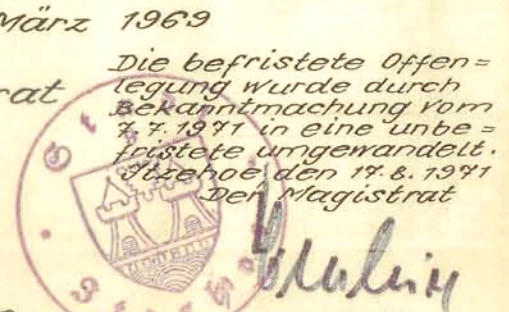 März 1969
rat
Die befristete Offen=
legung wurde durch
Bekanntmachung vom
7.7.1971 in eine unbe=
fristete umgewandelt.
Itzehoe, den 17.8.1971
Der Magistrat